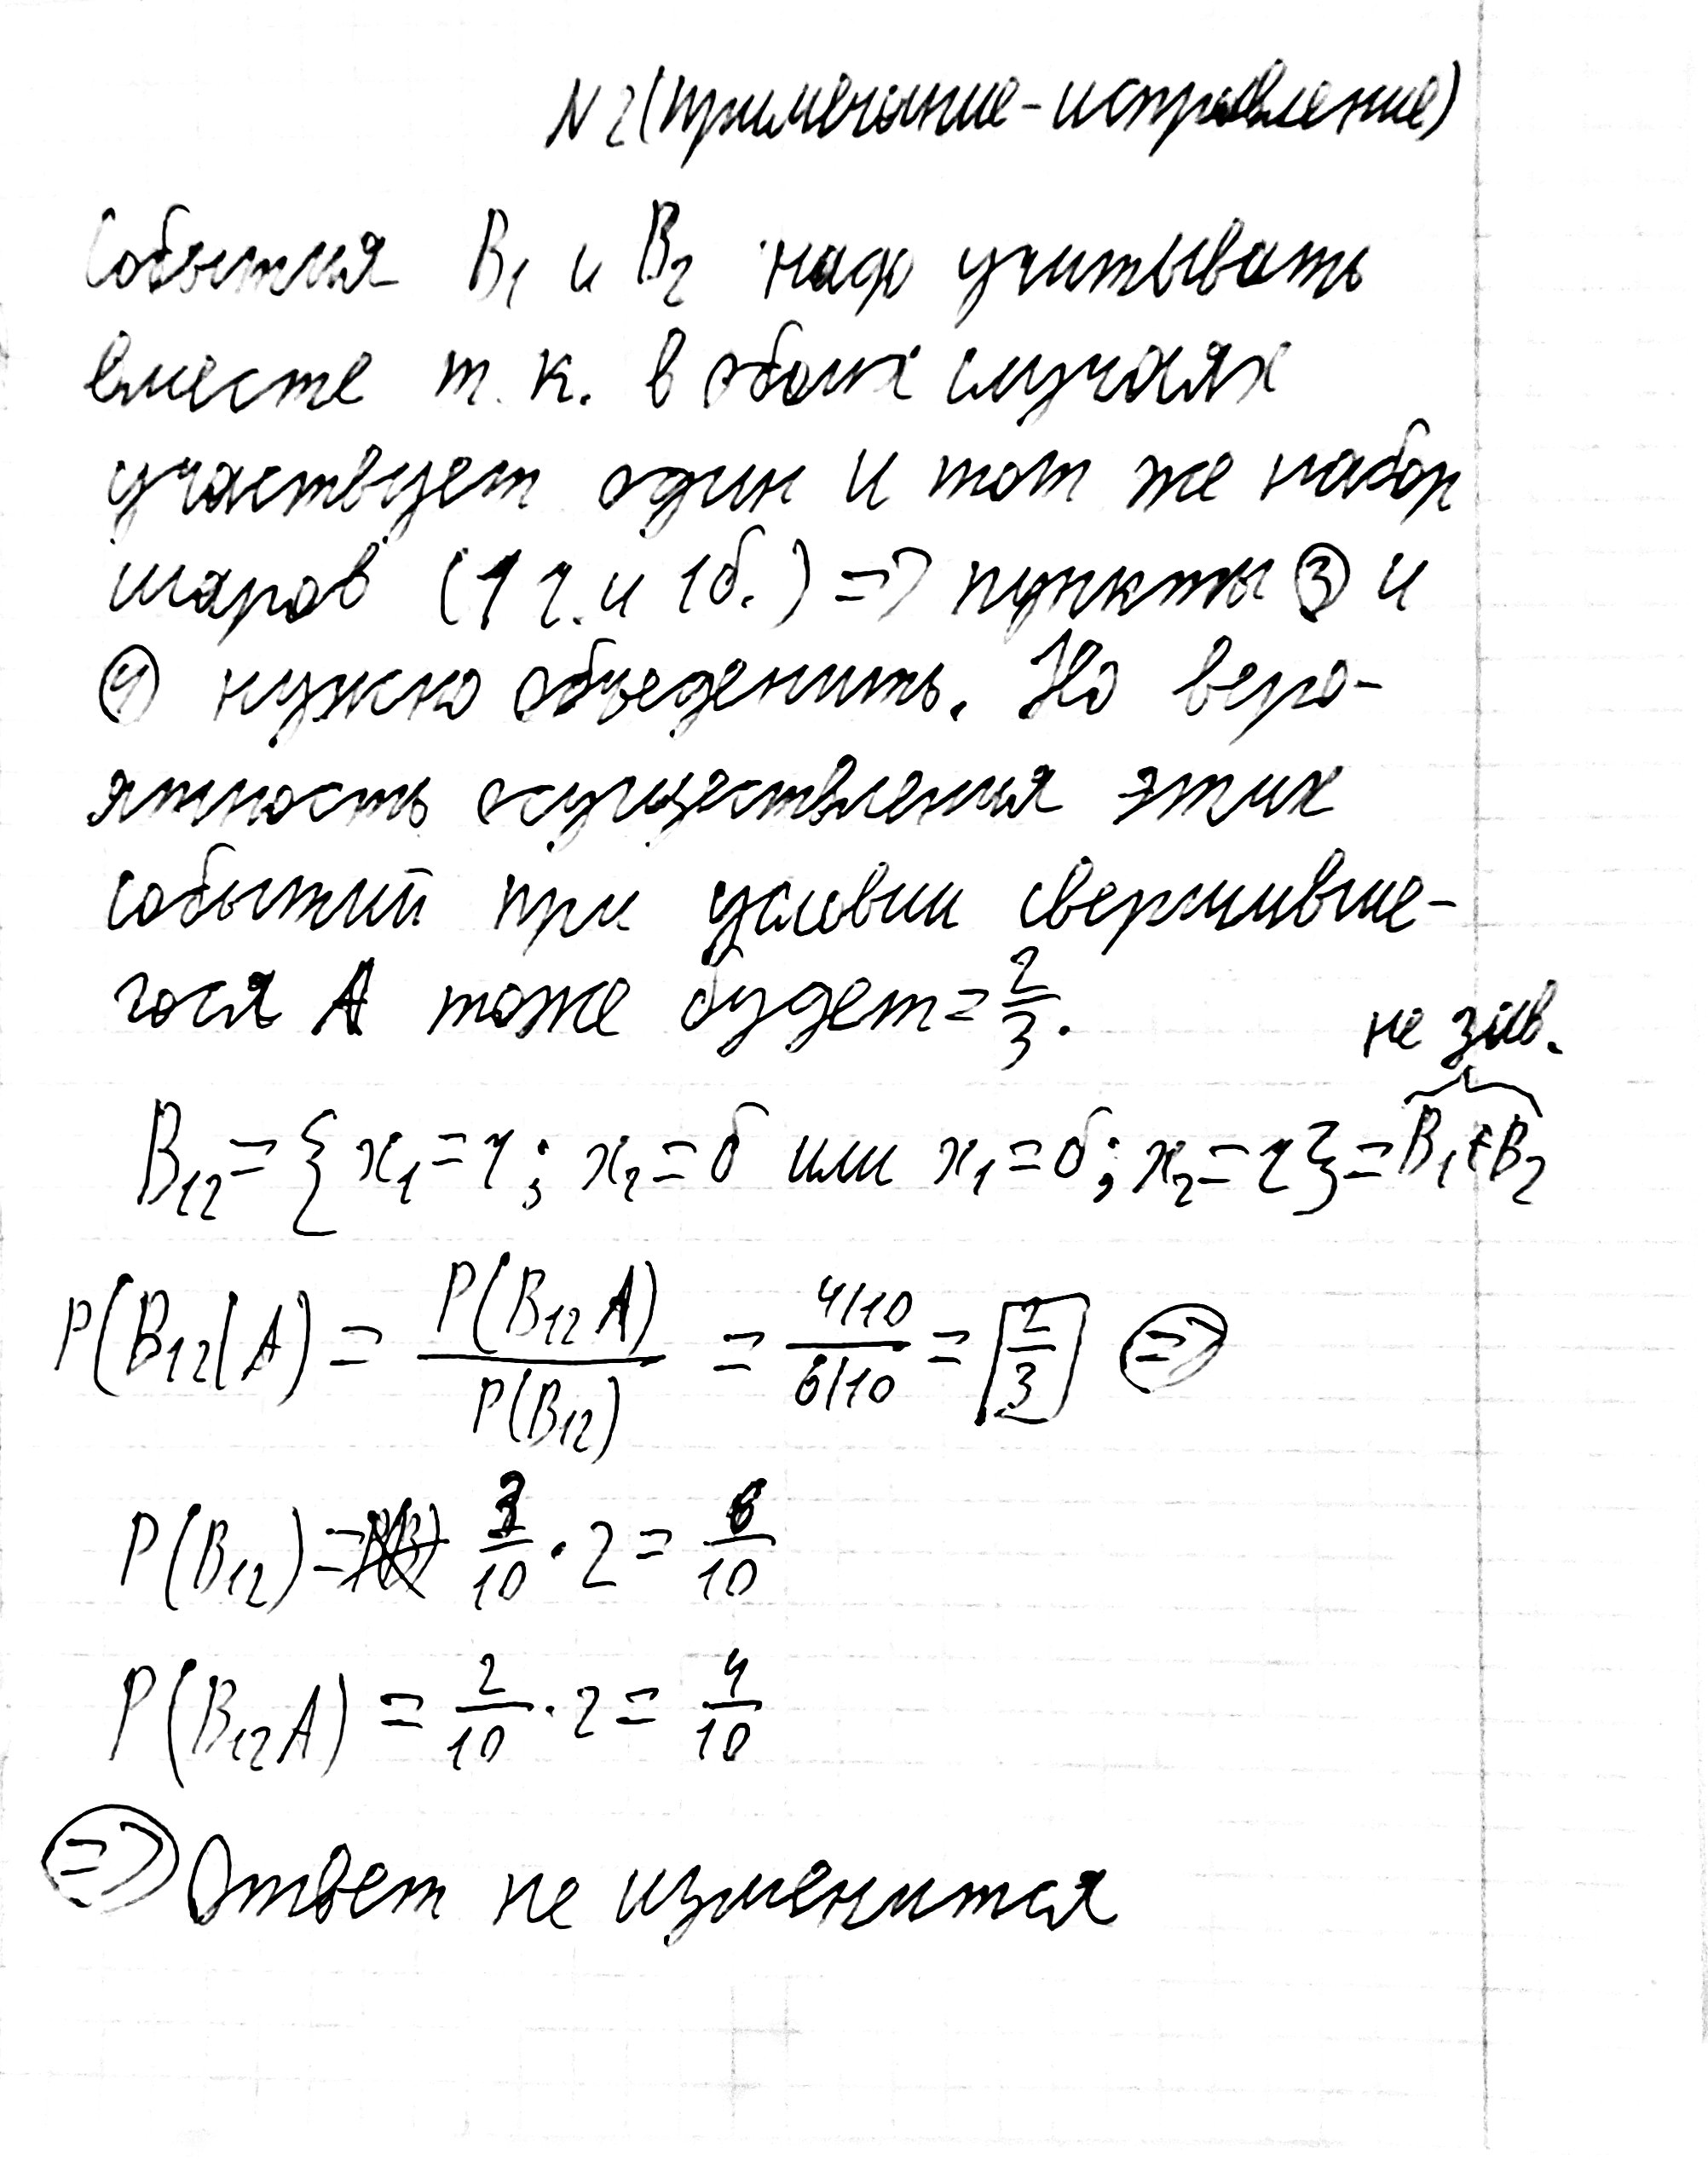 N2 (примечание-исправление)
События B₁ и B₂ надо учитывать
вместе т.к. в обоих случаях
участвует один и тот же набор
шаров (1 ч. и 1 б.) => пункты ③ и
④ нужно объеденить. Но веро-
ятность осуществления этих
событий при условии свершивше-
гося A тоже будет = 2/3.
не зав.
B₁₂ = { x₁ = ч ; x₂ = б или x₁ = б ; x₂ = ч } = B₁ + B₂
P(B₁₂|A) = P(B₁₂A) / P(B₁₂) = (4/10) / (6/10) = 2/3 =>
P(B₁₂) = 3/10 · 2 = 6/10
P(B₁₂A) = 2/10 · 2 = 4/10
=> Ответ не изменится